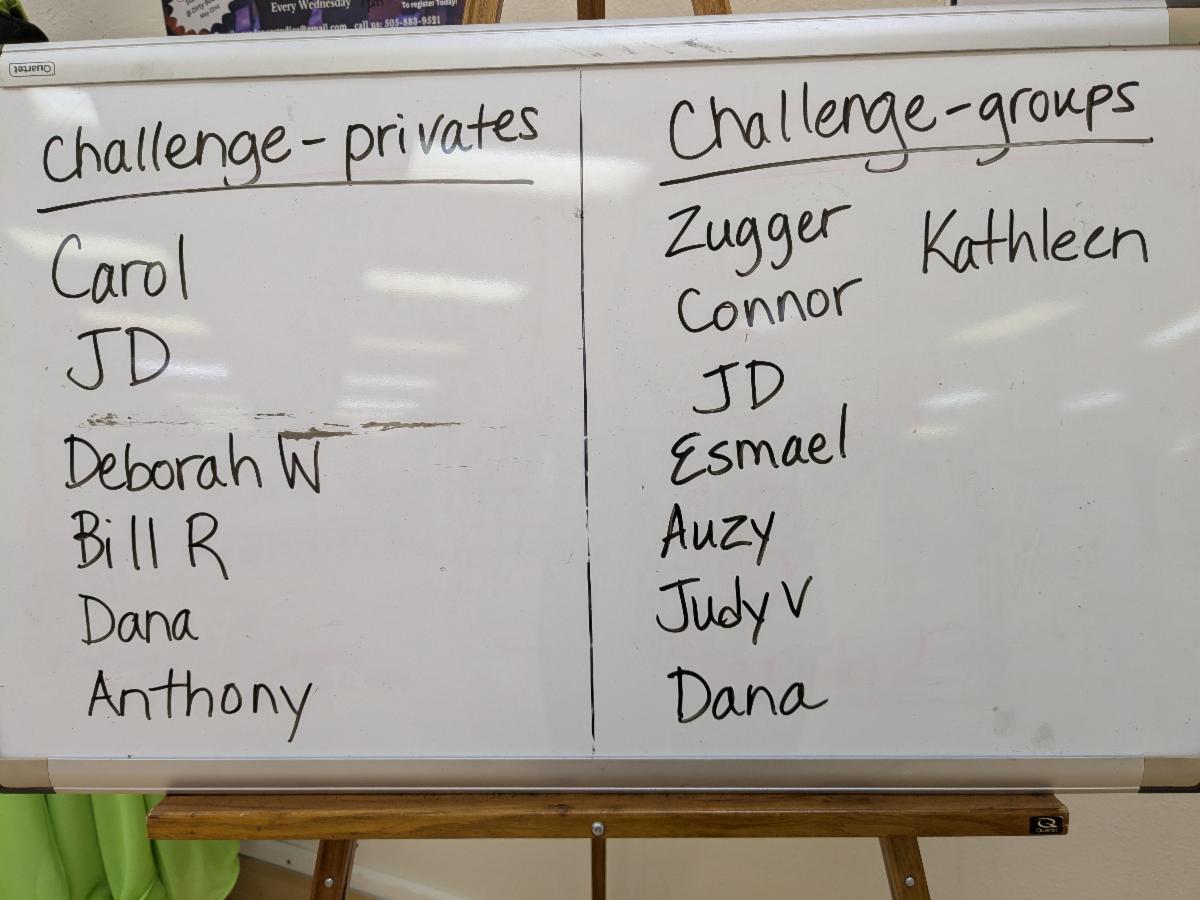 Every Wednesday
To register Today!
call us: 505-883-9521
Quartet
Challenge-privates
Carol
JD
Deborah W
Bill R
Dana
Anthony
Challenge-groups
Zugger Kathleen
Connor
JD
Esmael
Auzy
Judy V
Dana
Q
Quartet